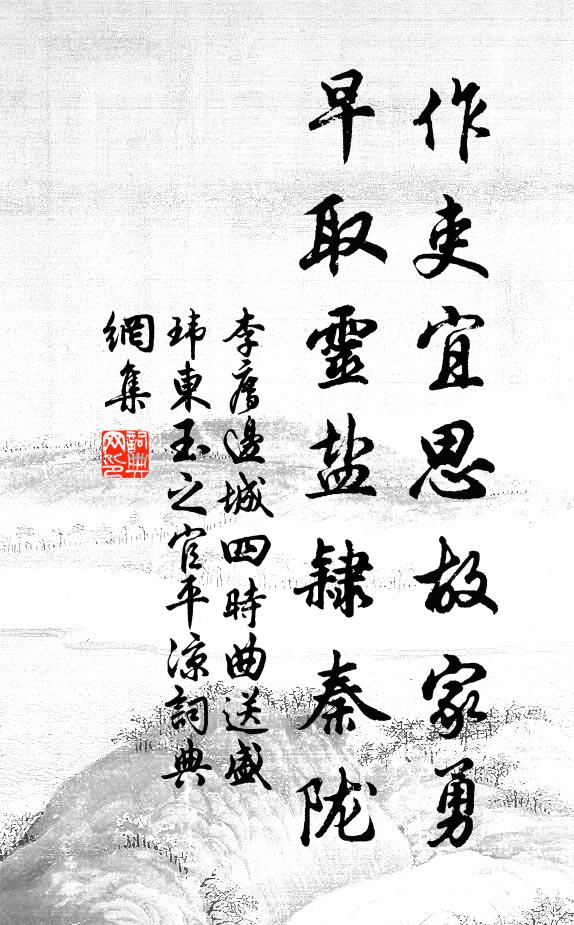 作吏宜思故家勇
早取靈盐隸秦陇
李鹰邊城四時曲送盛
玮東玉之官平凉詞典
網集
詞典網印